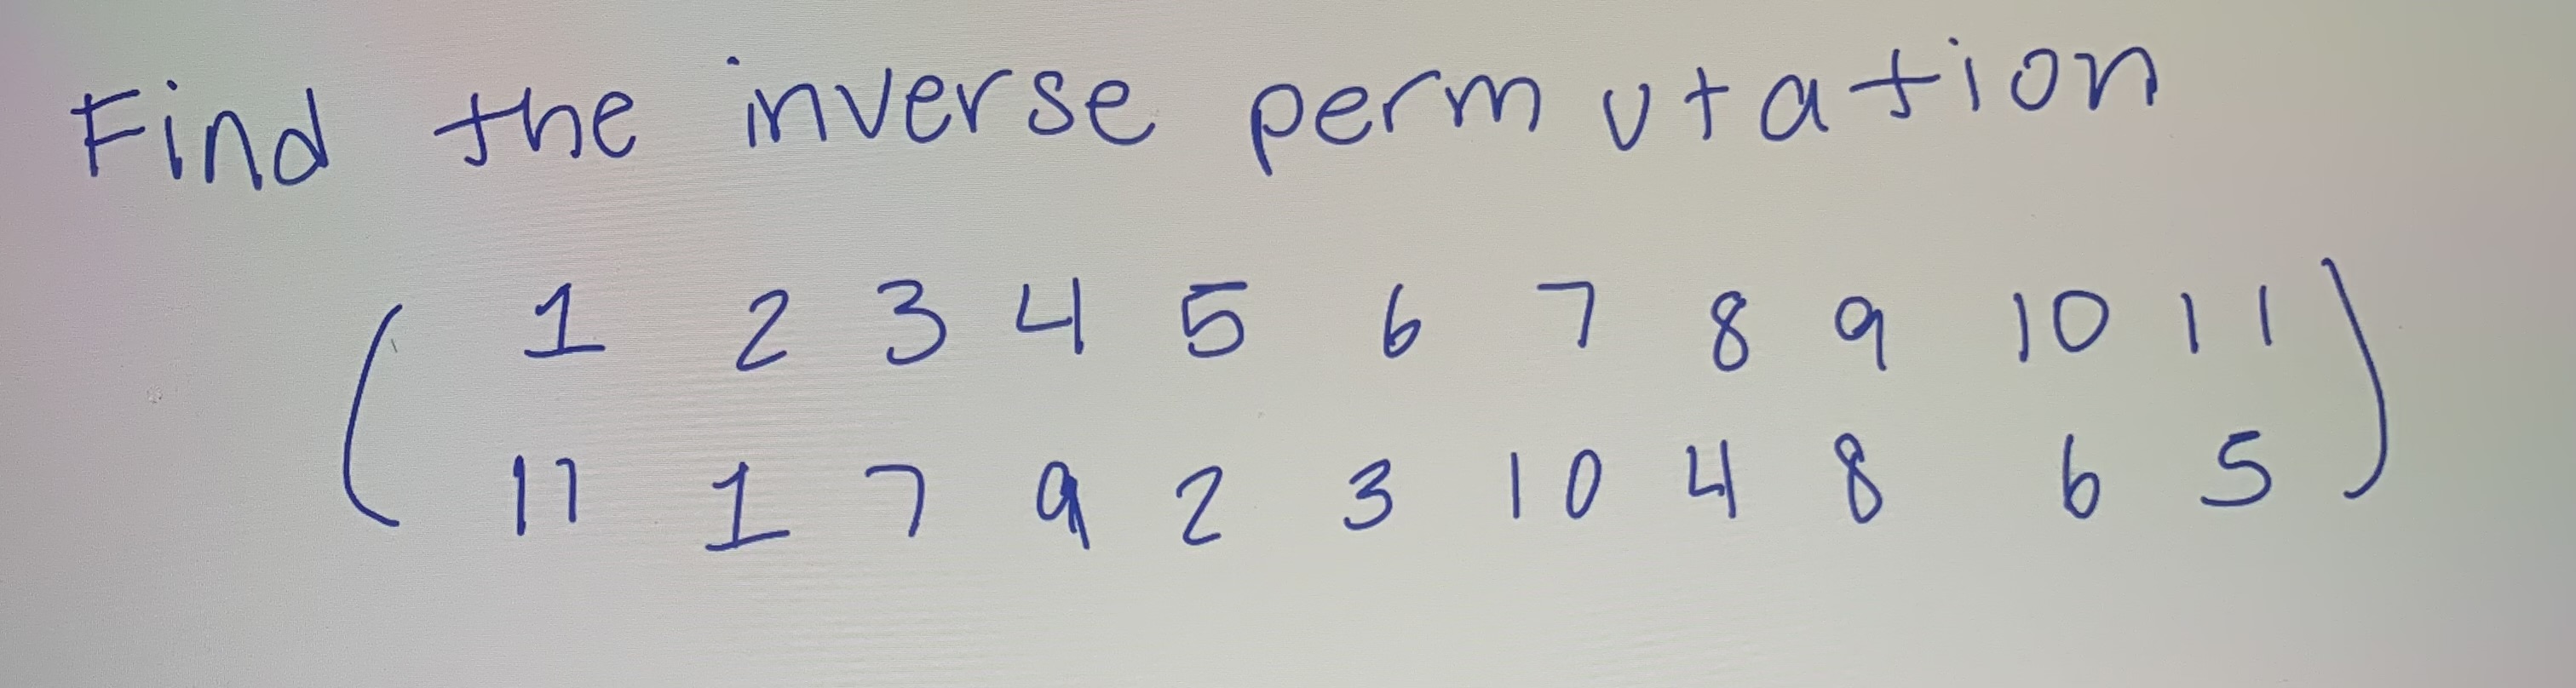 Find the inverse permutation
( 1 2 3 4 5 6 7 8 9 10 11 )
( 11 1 7 9 2 3 10 4 8 6 5 )